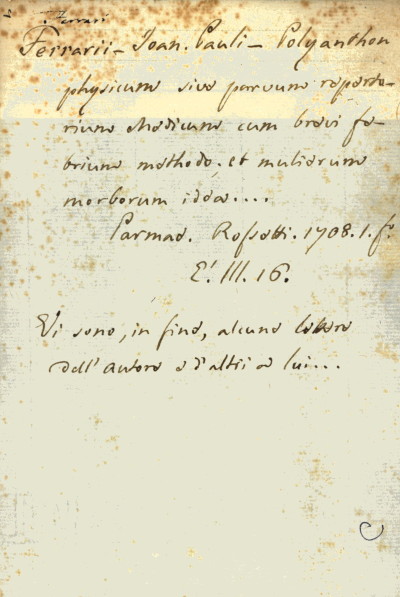 Ferrari
Ferrarii - Joan. Pauli - Polyanthon
physicum sive parvum reperto-
rium Medicum cum brevi fe-
brium methodo, et muliorum
morborum idea....
Parmae. Rossetti. 1708. 1. fo.
E'. III. 16.
Vi sono, in fine, alcune lettere
dell' autore e d'altri a lui...